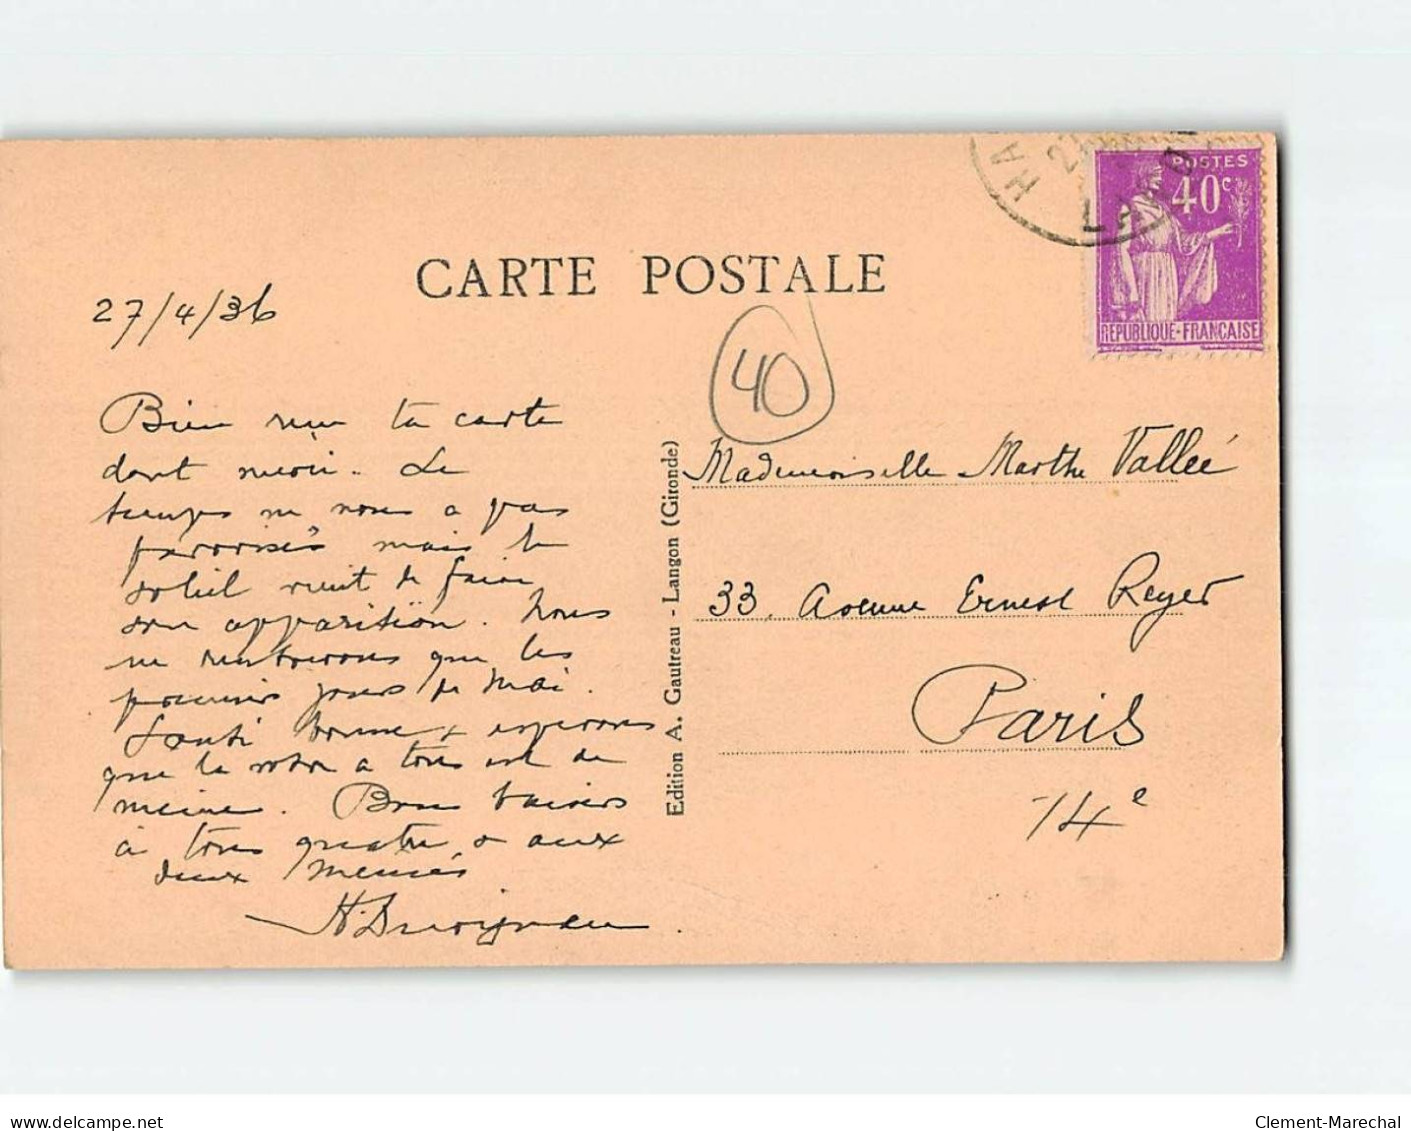 HA
LANDES
POSTES
40c
REPUBLIQUE-FRANÇAISE
CARTE POSTALE
27/4/36
40
Bien reçu ta carte
dont merci. Le
temps ne nous a pas
favorisés mais le
soleil vient de faire
son apparition. Nous
ne rentrerons que les
premiers jours de Mai.
Santé bonne & espérons
que la votre à tous est de
meine. Bons baisers
à tous quatre & aux
deux Mémés
Mademoiselle Marthe Vallée
33, Avenue Ernest Reyer
Paris
14e
Edition A. Gautreau - Langon (Gironde)
www.delcampe.net
Clement-Marechal